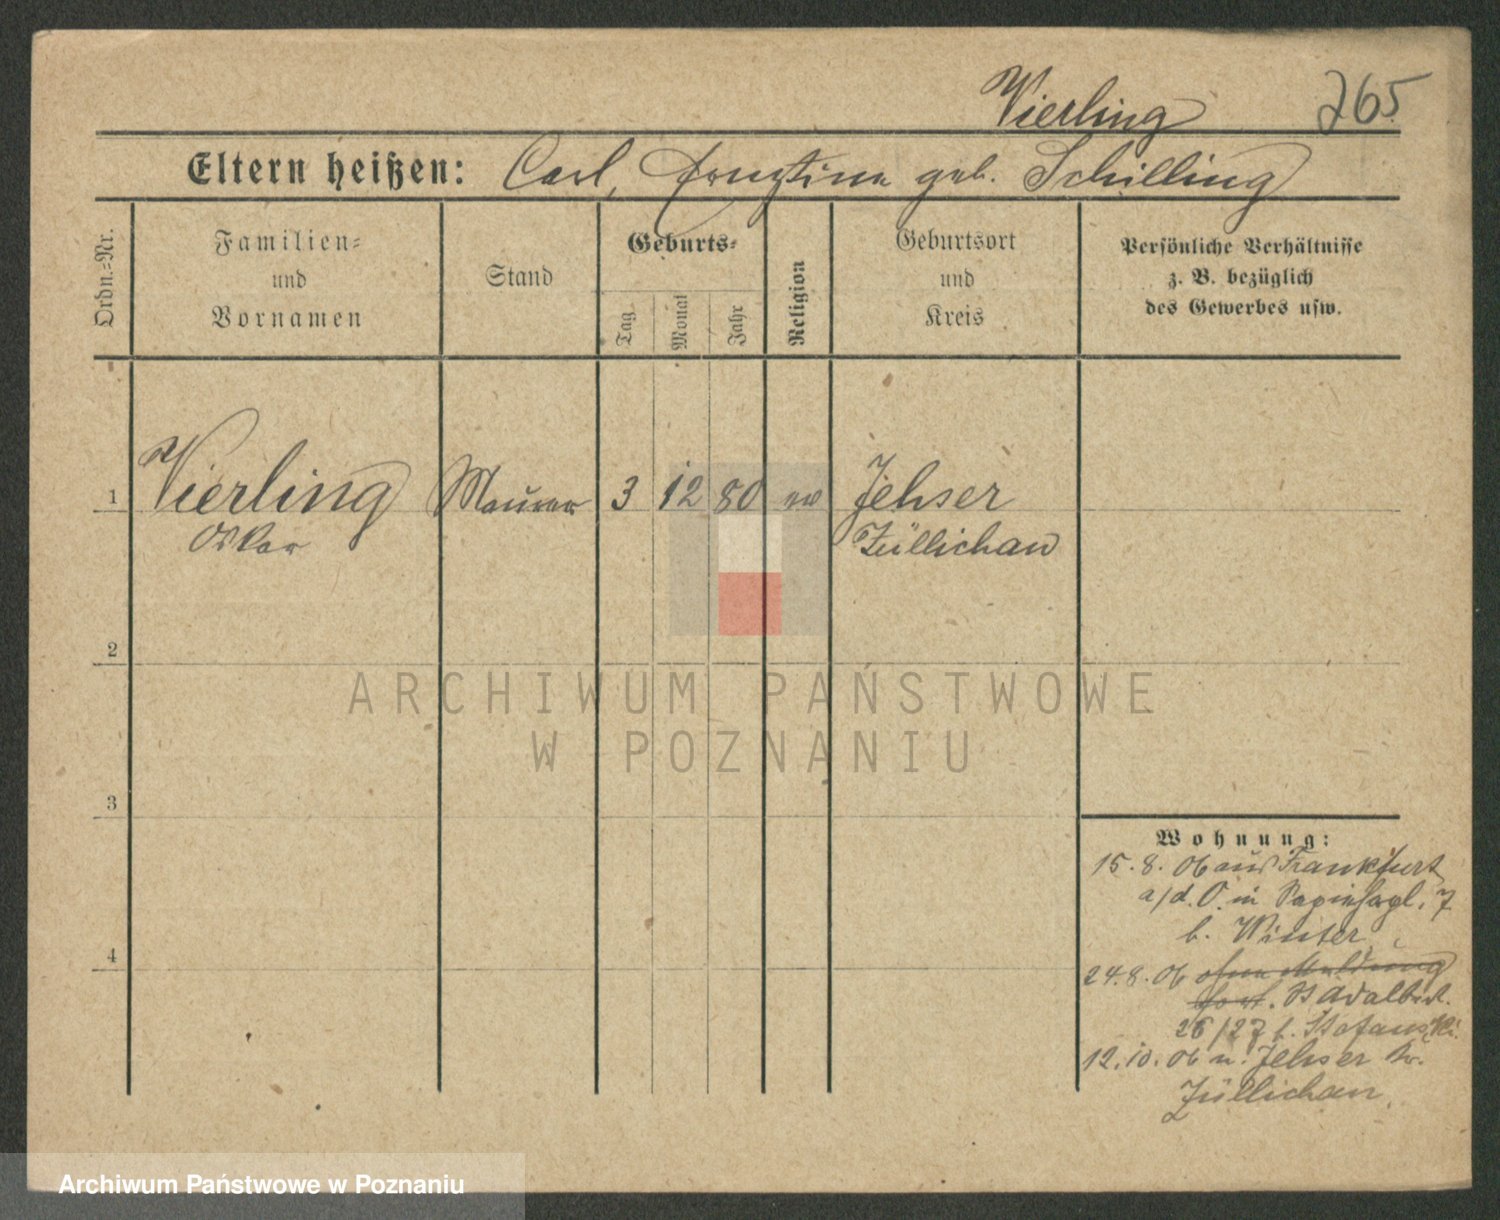 Vierling 265
Eltern heißen: Carl, Ernstine geb. Schilling
Ordn.=Nr.
Familien=
und
Vornamen
Stand
Geburts=
Tag
Monat
Jahr
Religion
Geburtsort
und
Kreis
Persönliche Verhältnisse
z. B. bezüglich
des Gewerbes usw.
1 Vierling Maurer 3 12 80 ev Jehser
Oskar Züllichau
2
ARCHIWUM PAŃSTWOWE
W POZNANIU
3
Wohnung:
15.8.06 aus Frankfurt
a/d. O. in 7
b. Winter
4
24.8.06 ohne Meldung
fort. St Adalbert.
26/27 b. Stefanski.
12.10.06 n. Jehser Kr.
Züllichau
Archiwum Państwowe w Poznaniu